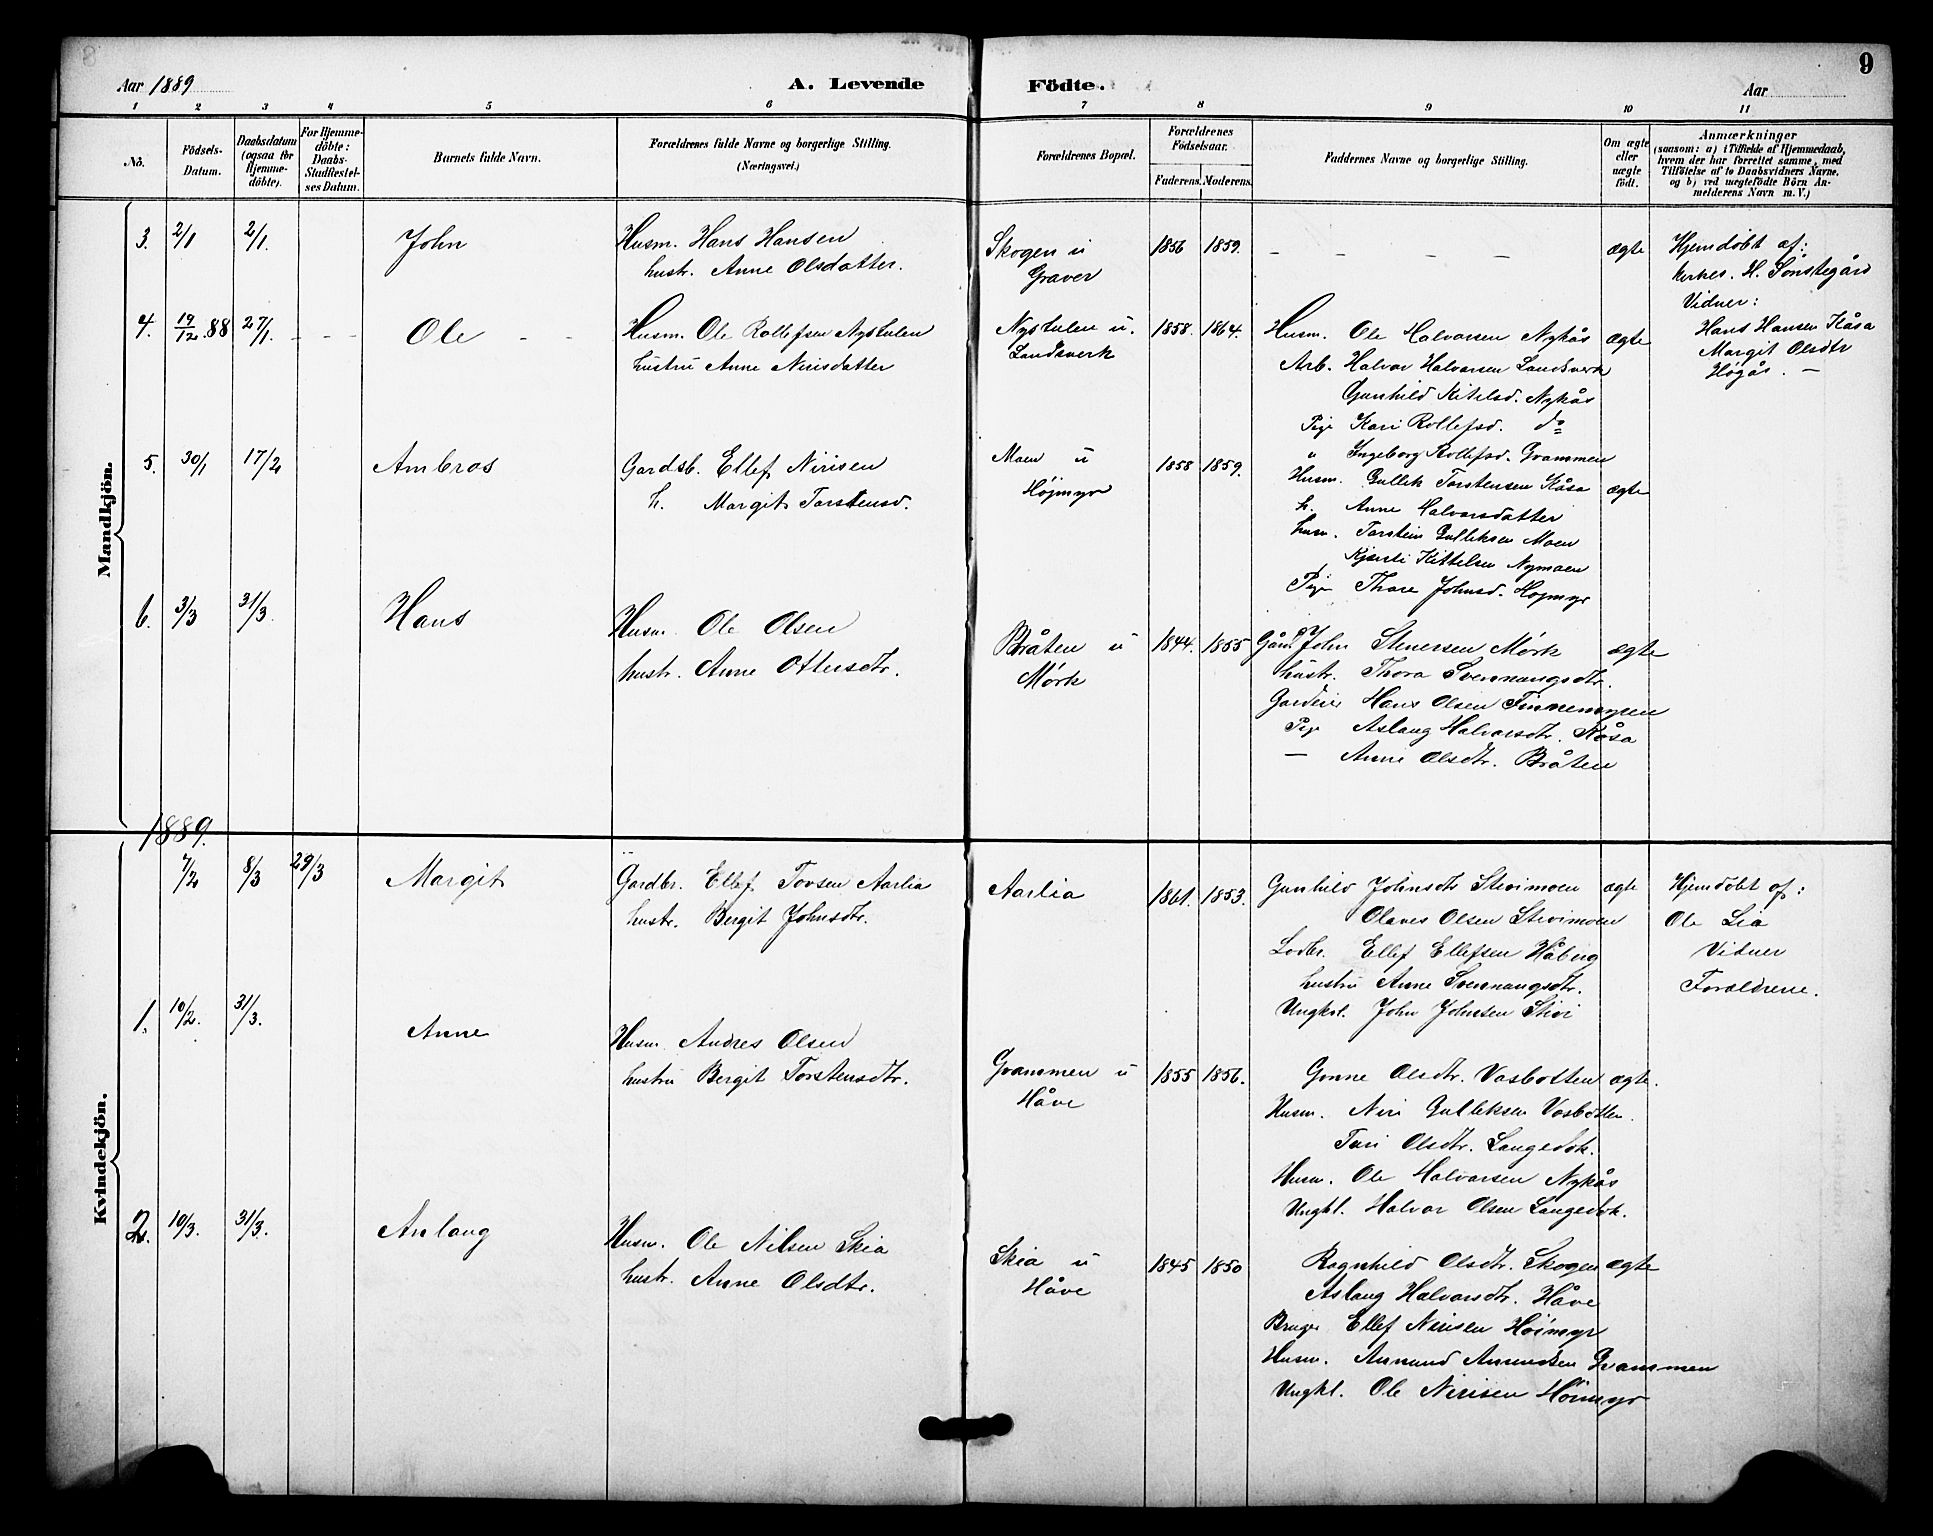 Aar 1889
A. Levende Födte.
9
Aar
1 2 3 4 5 6 7 8 9 10 11
No.
Födsels-Datum.
Daabsdatum (ogsaa for Hjemmedöbte).
For Hjemmedöbte: Daabs-Stadfæstelses Datum.
Barnets fulde Navn.
Forældrenes fulde Navne og borgerlige Stilling.
(Næringsvei.)
Forældrenes Bopæl.
Forældrenes Födselsaar.
Faderens. Moderens.
Faddernes Navne og borgerlige Stilling.
Om ægte eller uægte födt.
Anmærkninger
(saasom: a) i Tilfælde af Hjemmedaab,
hvem der har forrettet samme, med
Tilföielse af to Daabsvidners Navne,
og b) ved uægtefödte Börn Anmelderens Navn m. V.)
Mandkjön.
3. 2/1 2/1. John
Husm. Hans Hansen
hustr. Anne Olsdatter.
Skogen u
Graver
1856 1859.
– – – –
ægte
Hjemdöbt af:
H. Sønstegård
Vidner:
Hans Hansen Kåsa
Margit Olsdtr
Høgås. –
4. 19/12.88 27/1. – – Ole – –
Husm. Ole Rollefsen Nystulen
hustru Anne Nirisdatter
Nystulen u.
Landsverk
1858. 1864.
Husm. Ole Halvorsen Nykås
Arb. Halvor Halvorsen Landsverk
Gunhild Kitelsd. Nykås
Pige Kari Rollefsd. do
" Ingeborg Rollefsd. Grammen
ægte
5. 30/1 17/2 Ambros
Gardsb. Ellef Nirisen
h. Margit Torstensd.
Moen u
Højmyr
1858 1859.
Husm. Gullik Torstensen Kåsa
h. Anne Halvorsdatter
husm. Torstein Gulleksen Moen
Kjersti Kittelsen Nymoen
Pige Thore Johnsd. Højmyr
ægte
6. 3/3 31/3. Hans
Husm. Ole Olsen
hustr. Anne Ottersdtr.
Bråten u
Mørk
1844. 1855
John Stenersen Mørk
hustr. Thora Svennungsdtr.
Hans Olsen Finnemyren
Pige Aslaug Halvorsdtr. Kåsa
– Anne Olsdtr. Bråten
ægte
1889.
Kvindekjön.
7/2 8/3 29/3 Margit
Gardbr. Ellef Tovsen Aarlia
hustr. Bergit Johnsdtr.
Aarlia
1861. 1853.
Gunhild Johnsdtr Stivimoen
Olaves Olsen Stivimoen
Lodbr. Ellef Ellefsen Håberg
hustru Anne Svennungsdtr.
Ungkrl. John Johnsen Stivi
ægte
Hjemdöbt af:
Ole Lia
Vidner
Forældrene.
1. 10/2. 31/3. Anne
Husm Andres Olsen
hustru Bergit Torstensdtr.
Grammen u
Håve
1855 1856.
Gonne Olsdtr. Vasbotten
Husm. Niri Gulleksen Vasbotten.
Tari Olsdtr. Langedok.
Husm. Ole Halvorsen Nykås
Ungkl. Halvor Olsen Langedok.
ægte.
2. 10/3. 31/3. Anlaug
Husm. Ole Nilsen Skia
hustr. Anne Olsdtr.
Skia u
Håve
1845 1850
Ragnhild Olsdtr. Skogen
Aslaug Halvorsdtr. Håve
Bruger Ellef Nirisen Høimyr
Husm. Anmund Anmundsen Grammen
Ungkl. Ole Nirisen Høimyr
ægte